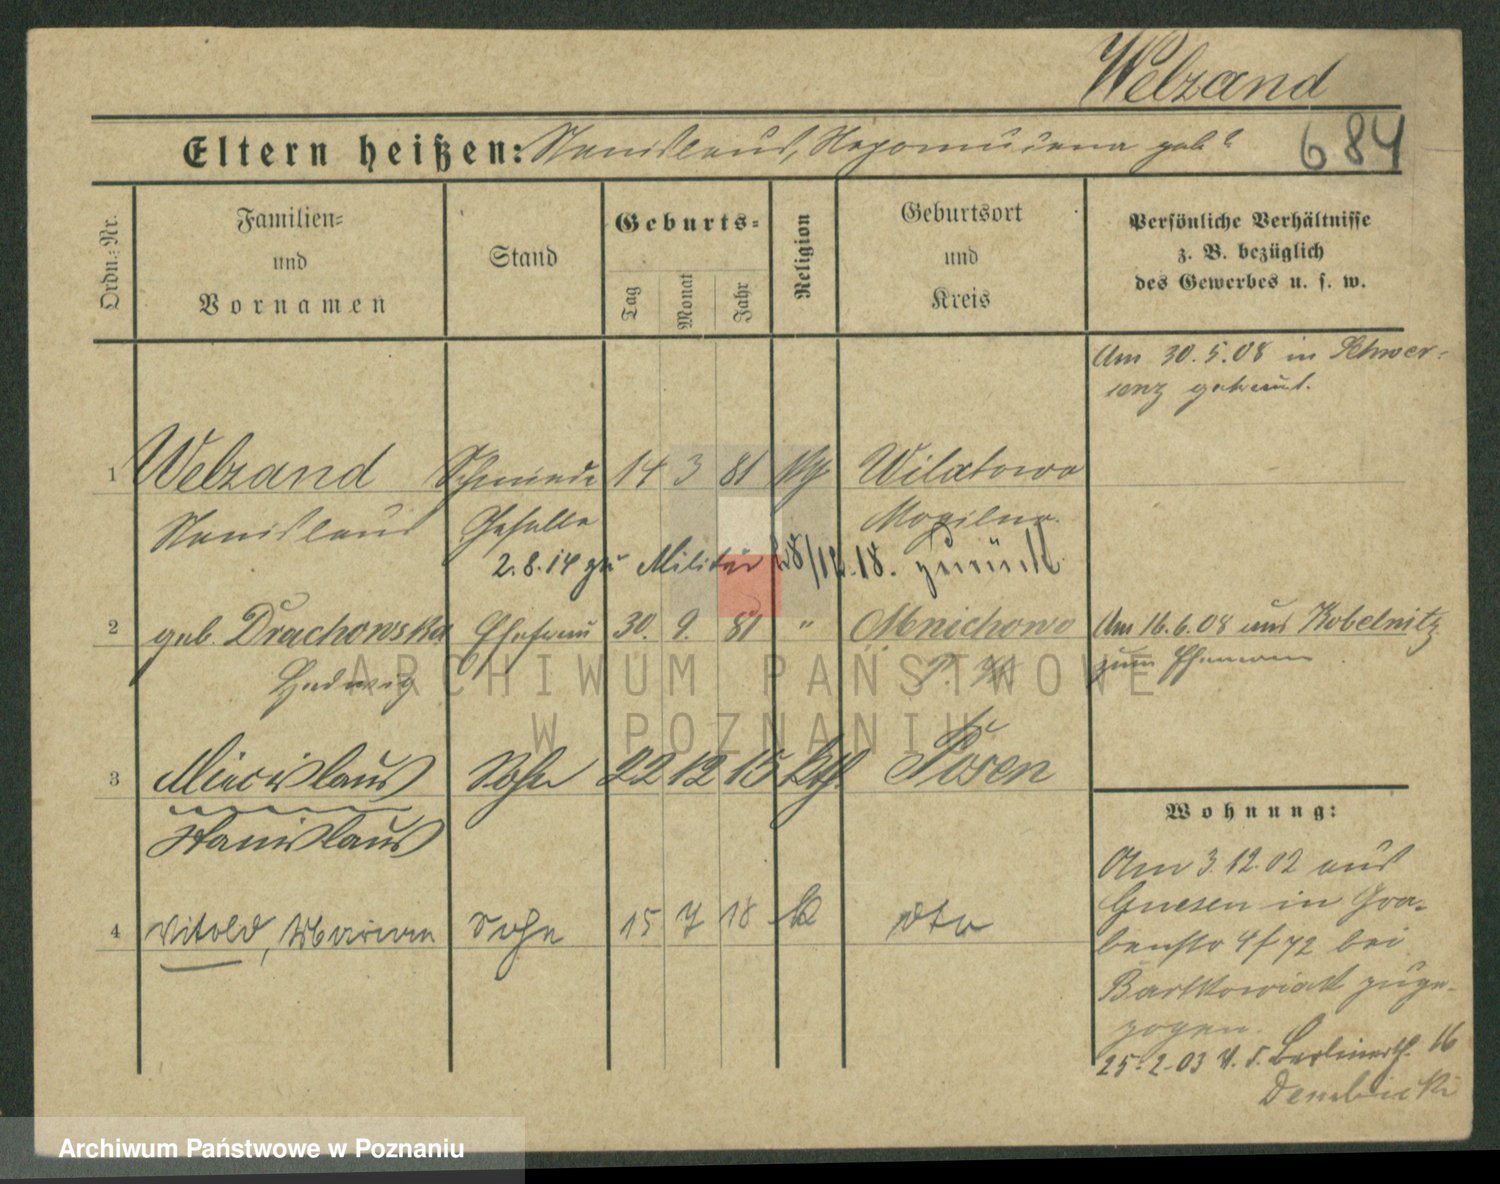 Welzand
Eltern heißen: Stanislaus, Nepomucena geb ?
684
Ordn.-Nr.
Familien-
und
Vornamen
Stand
Geburts-
Tag
Monat
Jahr
Religion
Geburtsort
und
Kreis
Persönliche Verhältnisse
z. B. bezüglich
des Gewerbes u. s. w.
Am 30.5.08 in Schwer-
senz getraut.
1 Welzand Schmiede 14 3 81 Wilatowo
Stanislaus Geselle Mogilno.
2.8.14 zu Militär 28/12.18. zurück
2 geb. Drachowska Ehefrau 30. 9. 81 " Mnichowo
Hedwig
Am 16.6.08 aus Kobelnitz
zum Ehemann
3 Miecislaus Sohn 22 12 15 kth. Posen
Stanislaus
4 Vitold, Marian Sohn 15 7 18 k dto
Wohnung:
Am 3.12.02 aus
Gnesen in Gra-
benstr 4 f 72 bei
Bartkowiak zuge-
zogen.
25.2.03 Berlinerst. 16
Dembicki
ARCHIWUM PAŃSTWOWE
W POZNANIU
Archiwum Państwowe w Poznaniu